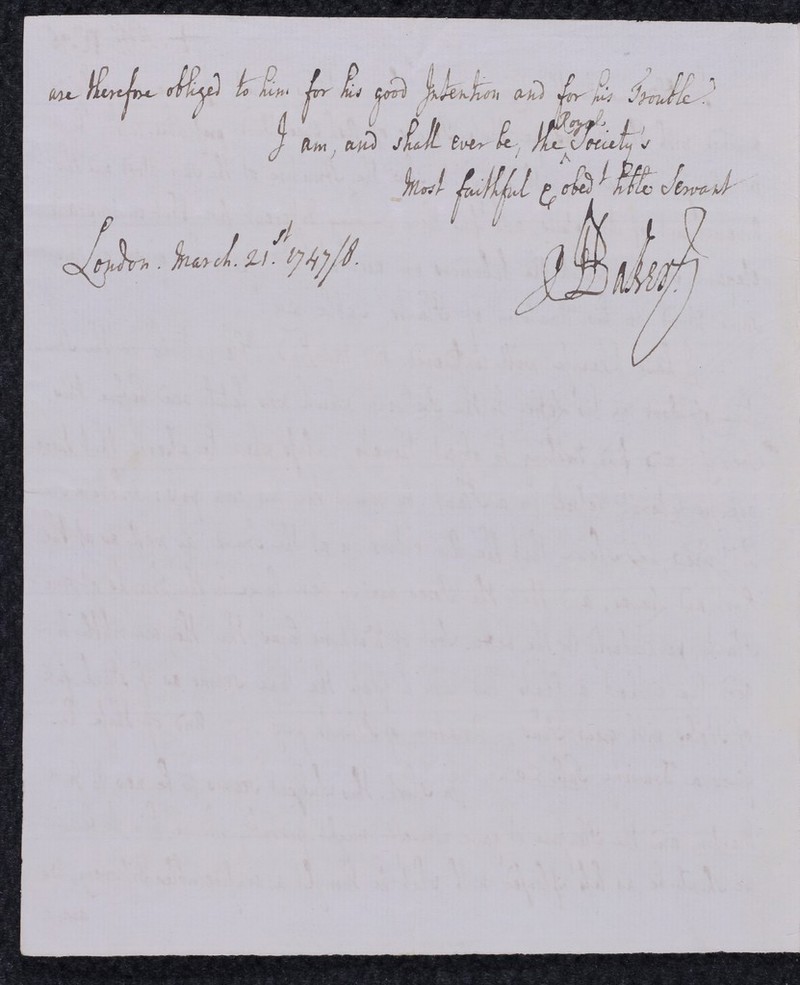 are therefore obliged to him for his good Intention and for his Trouble.
I am, and shall ever be, the ^Royal Society's
Most faithful & obed.t h'ble Servant
London. March. 21.st 1747/8.
H Baker.